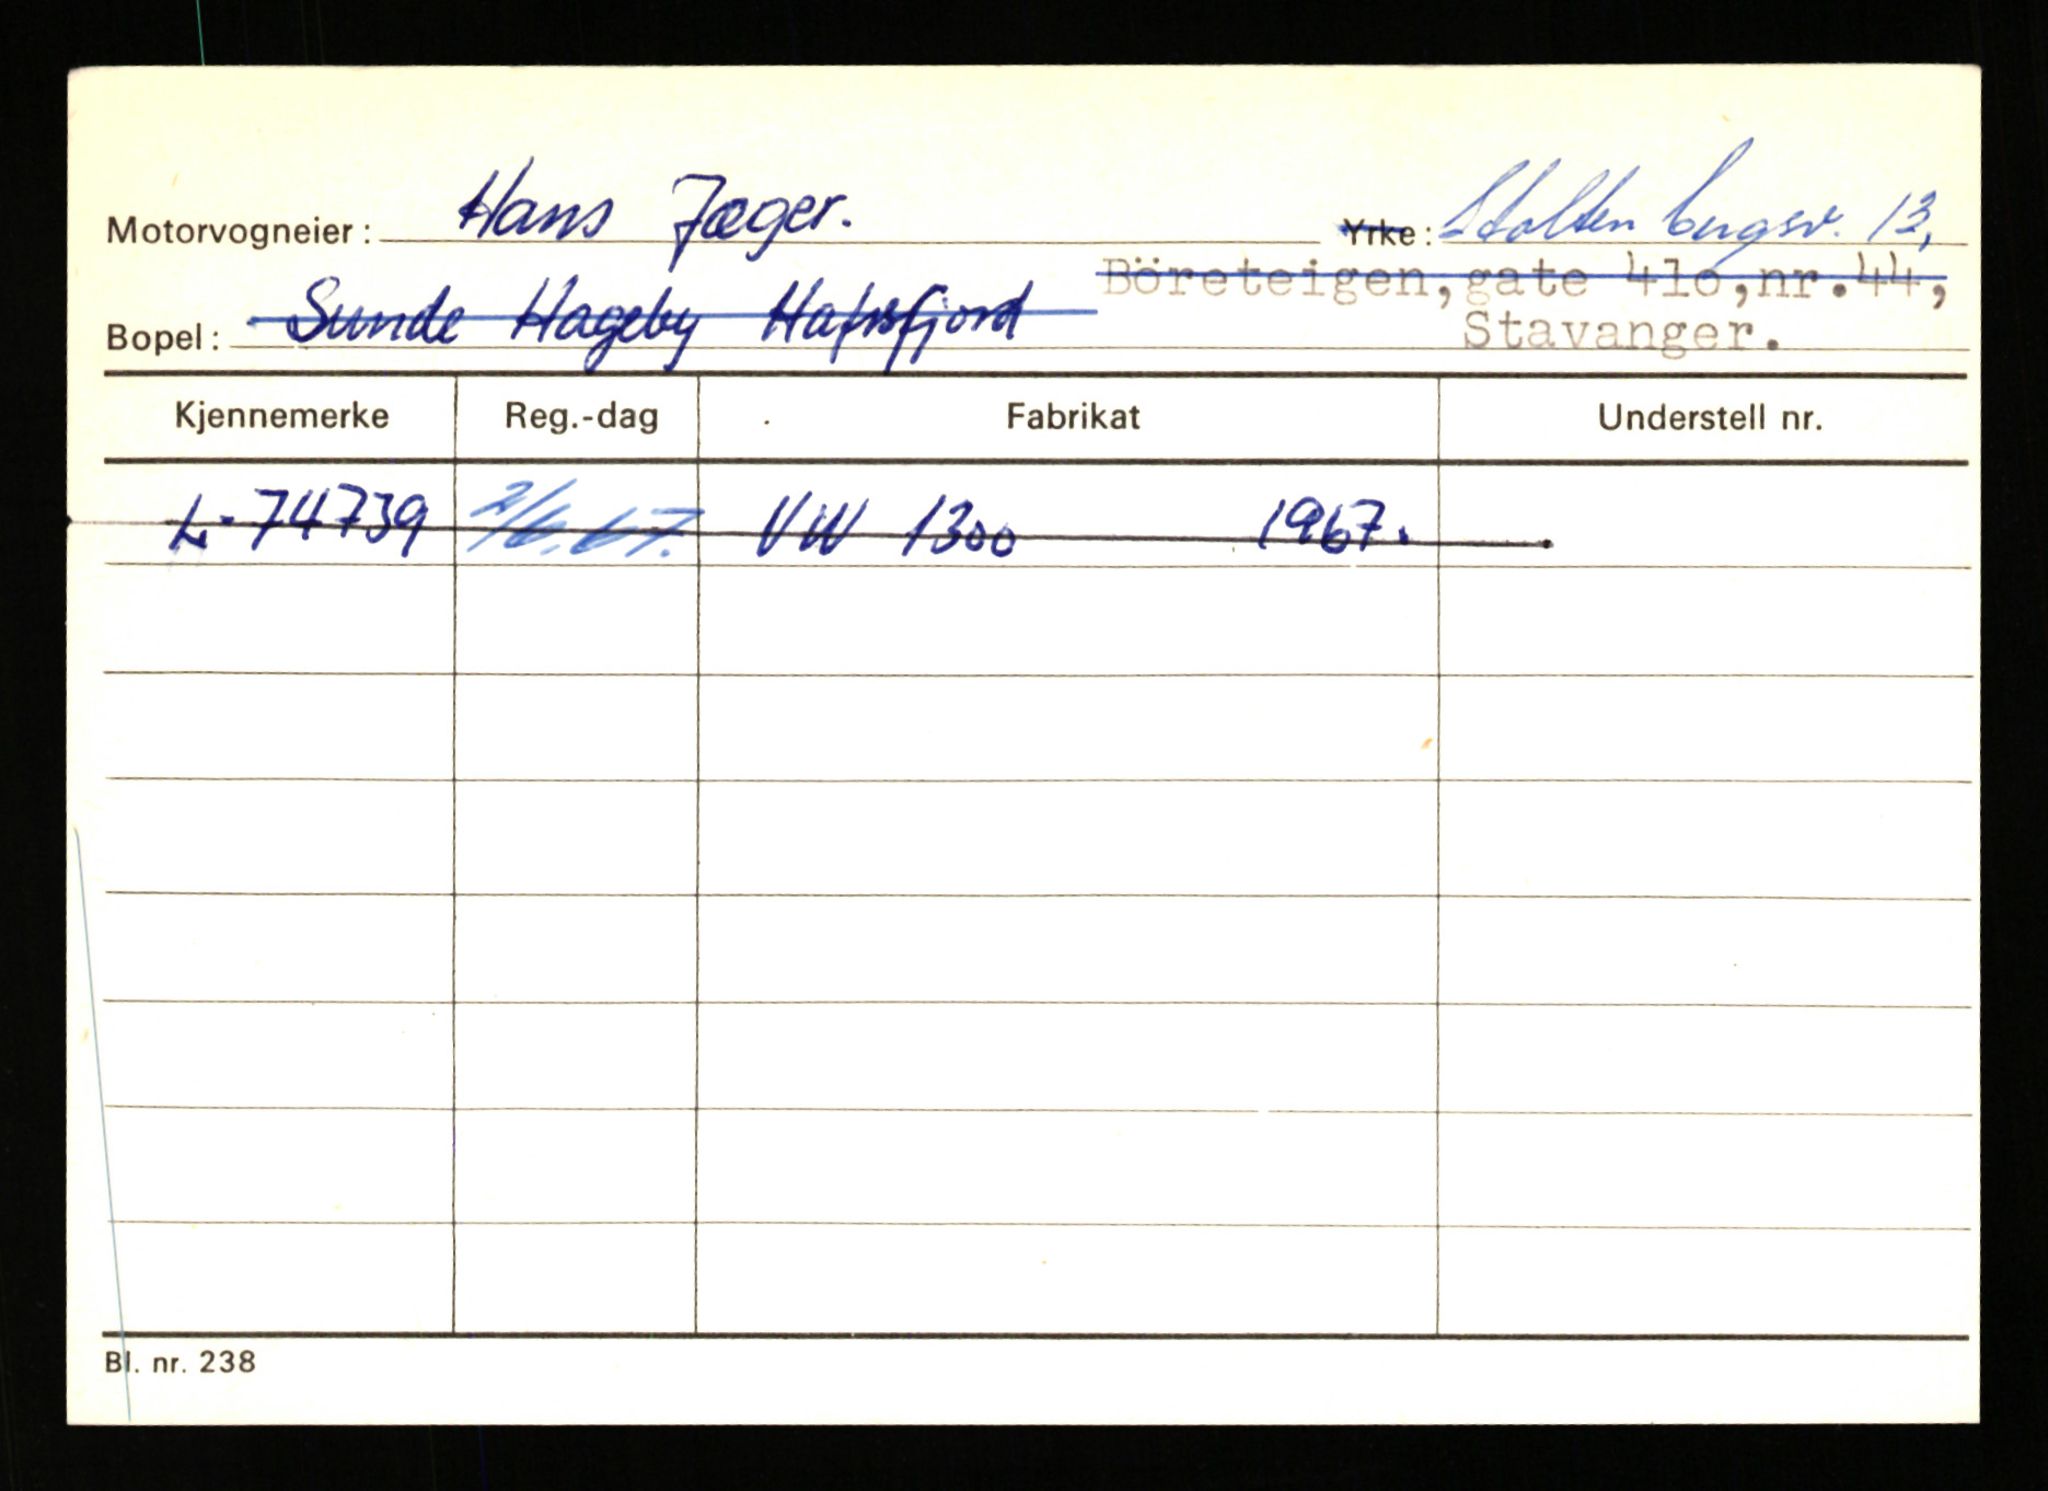 Motorvogneier: Hans Jæger. Yrke: Stoltenbergsv. 13,
Böreteigen, gate 410, nr. 44,
Bopel: Sunde Hageby Hafrsfjord Stavanger.
Kjennemerke Reg.-dag Fabrikat Understell nr.
L-74739 2/6.67. VW 1300 1967.
Bl. nr. 238